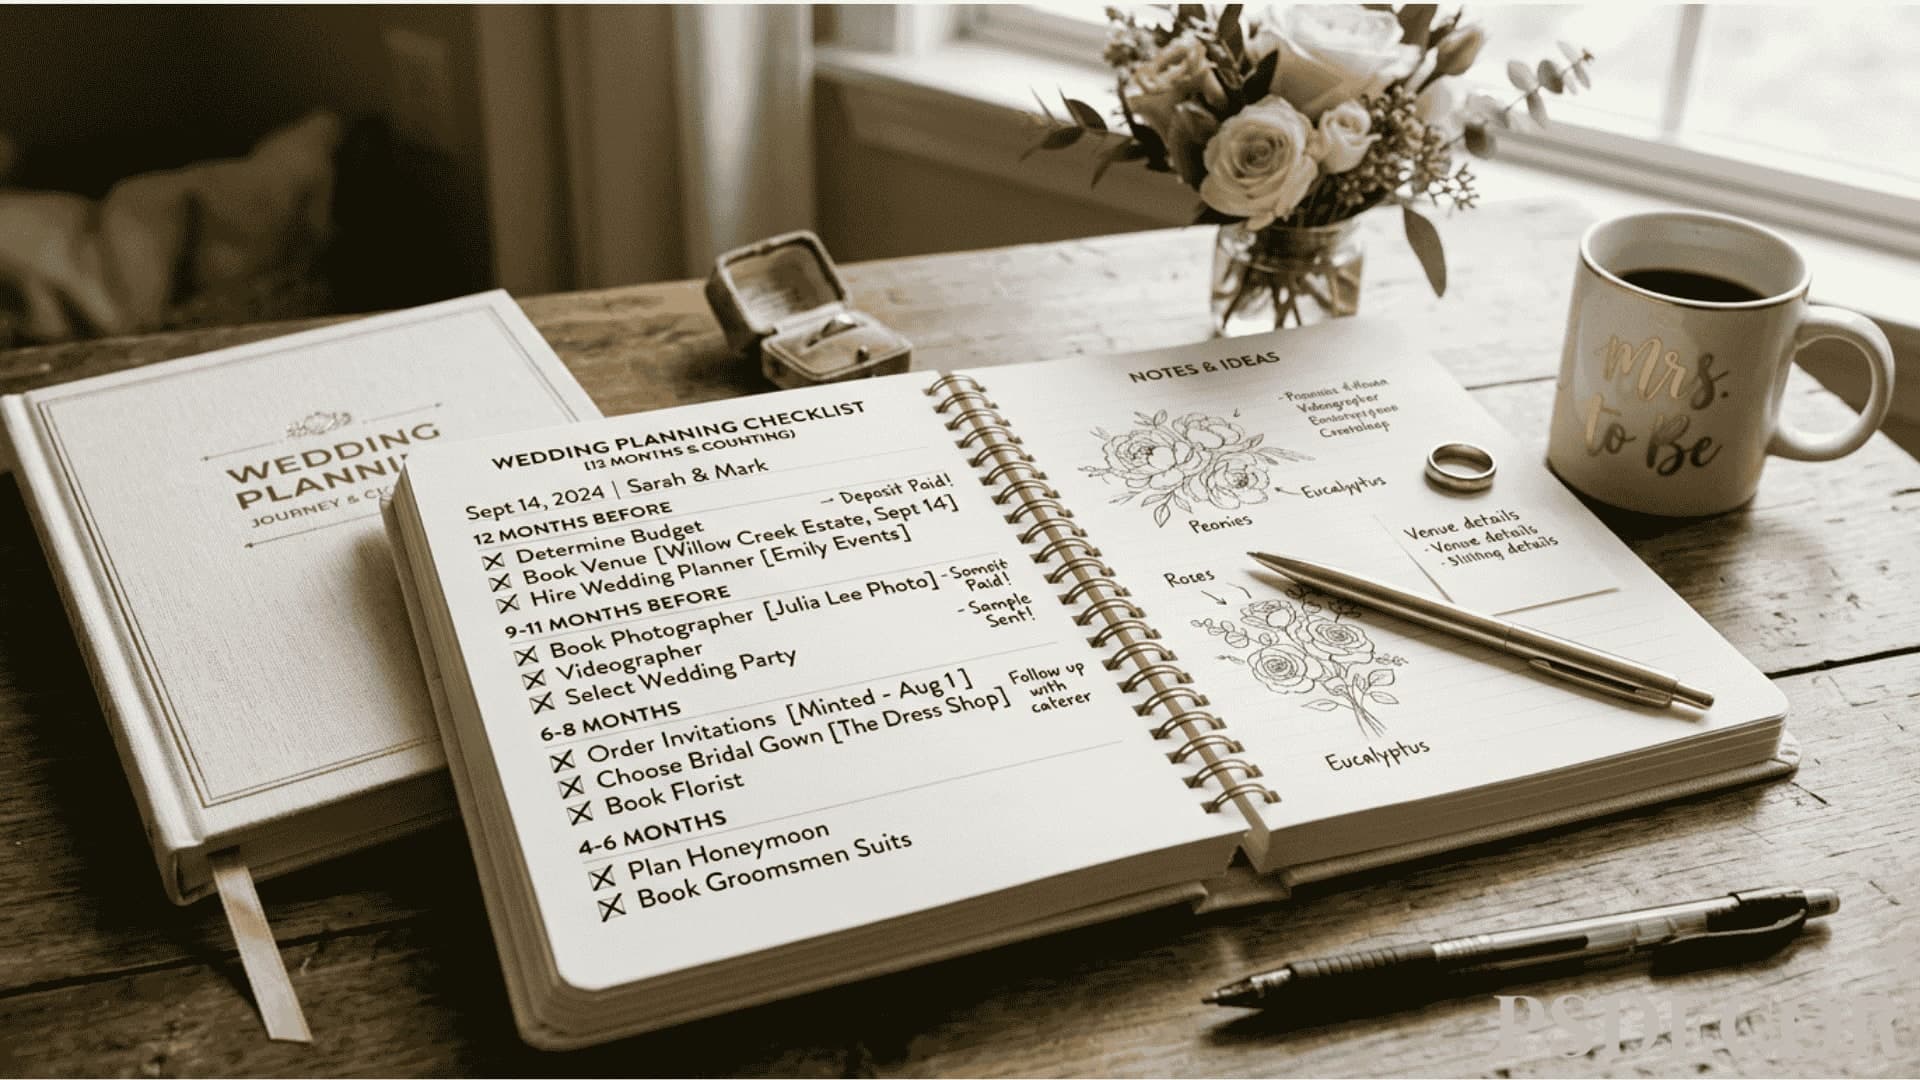 WEDDING
PLANNI
JOURNEY &
WEDDING PLANNING CHECKLIST
(13 MONTHS & COUNTING)
Sept 14, 2024 | Sarah & Mark
12 MONTHS BEFORE
→ Deposit Paid!
Determine Budget
Book Venue [Willow Creek Estate, Sept 14]
Hire Wedding Planner [Emily Events]
9-11 MONTHS BEFORE
Book Photographer [Julia Lee Photo]
- Somsit
Paid!
Videographer
- Sample
Sent!
Select Wedding Party
6-8 MONTHS
Order Invitations [Minted - Aug 1]
Choose Bridal Gown [The Dress Shop]
Follow up
with
caterer
Book Florist
4-6 MONTHS
Plan Honeymoon
Book Groomsmen Suits
NOTES & IDEAS
Eucalyptus
Peonies
Roses
Eucalyptus
Venue details
- Venue details
details
Mrs.
to Be